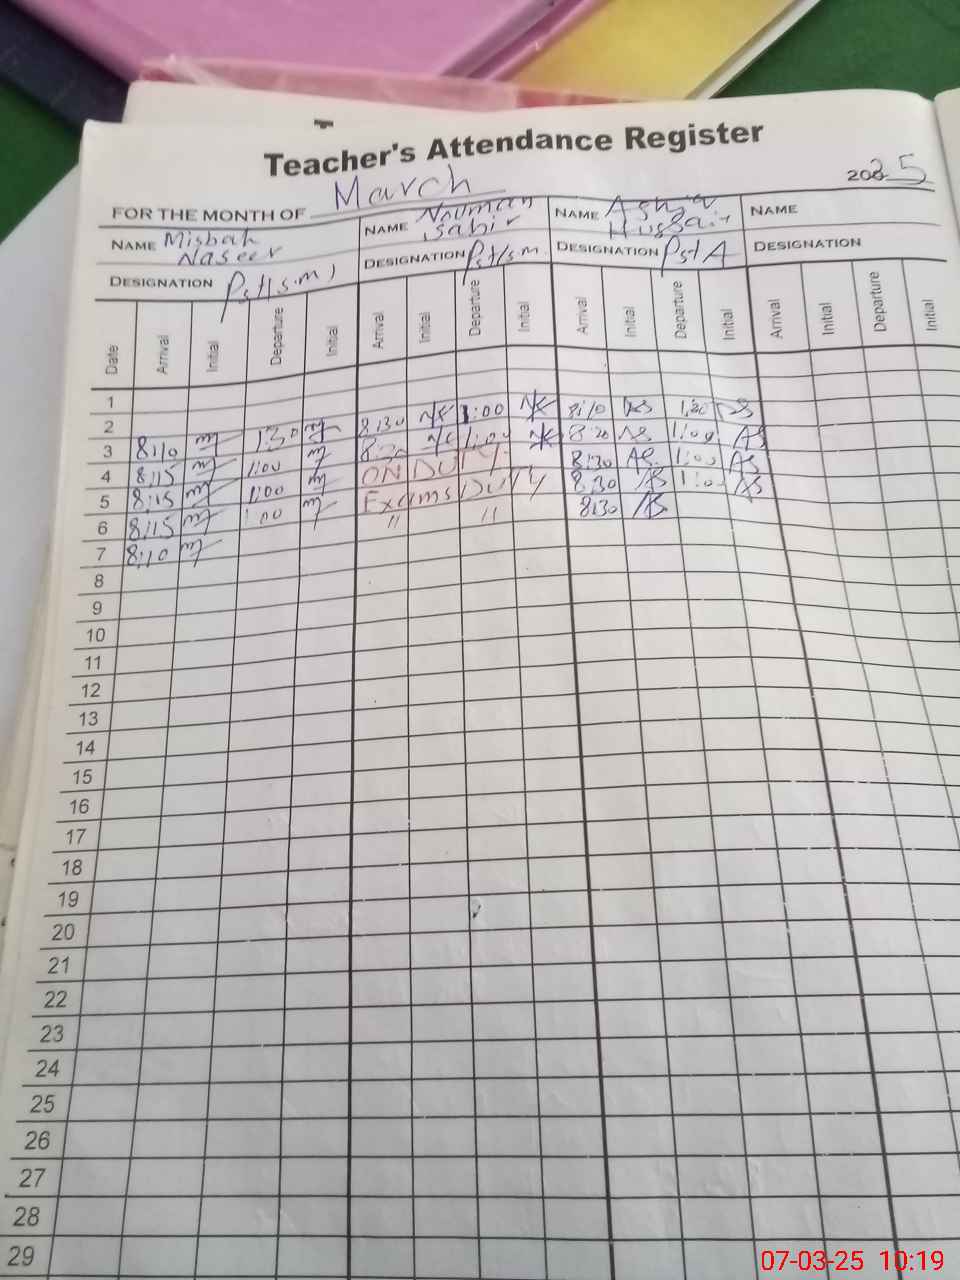 Teacher's Attendance Register
FOR THE MONTH OF March 2025
NAME Misbah Naseer NAME Nouman Sabir NAME Hussain NAME
DESIGNATION Pst(s.m) DESIGNATION Pst(s.m. DESIGNATION Pst A DESIGNATION
Date Arrival Initial Departure Initial Arrival Initial Departure Initial Arrival Initial Departure Initial Arrival Initial Departure Initial
1
2
3 8:10 1:30 8:30 1:00 8:10 1:20
4 8:15 1:00 8:30 1:00 8:20 AS 1:00 AS
5 8:15 1:00 ON DUTY 8:30 AS 1:00 AS
6 8:15 :00 Exams DUTY 8:30 AS 1:0 AS
7 8:10 " " 8:30 AS
8
9
10
11
12
13
14
15
16
17
18
19
20
21
22
23
24
25
26
27
28
29
07-03-25 10:19